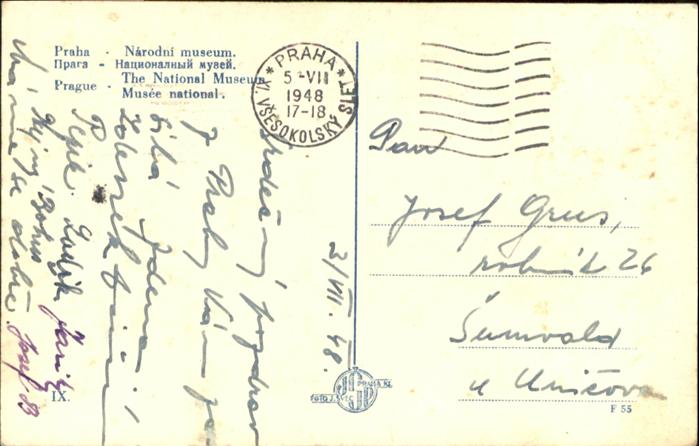 Praha - Národní museum.
Прага - Национальный музей.
Prague - The National Museum
Musée national.
PRAHA
5-VII
1948
17-18
XI. VŠESOKOLSKÝ SLET
3/VII. 48.
Srdečný pozdrav
z Prahy Vám
Zdenek
Pepík Ludvík Jarík
Bohus
se dobře. Josef
Pan
Josef Grus,
rolník 26
Šumvald
u Uničova
FOTO J. ŠVEC PRAHA XI.
IX.
F 55